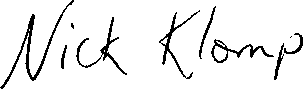 Nick Klomp